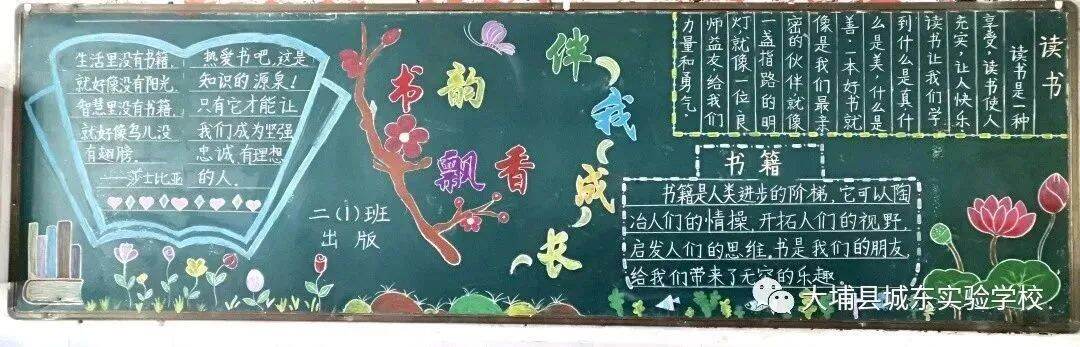 生活里没有书籍，
就好像没有阳光，
智慧里没有书籍，
就好像鸟儿没
有翅膀.
——莎士比亚
热爱书吧，这是
知识的源泉！
只有它才能让
我们成为坚强
忠诚有理想
的人.
书韵飘香
伴我成长
二(1)班
出版
读书
读书是一种
享受，读书使人
充实，让人快乐
读书让我们学
到什么是真，什
么是美，什么是
善.一本好书就
像是我们最亲
密的伙伴就像
一盏指路的明
灯，就像一位良
师益友给我们
力量和勇气.
书籍
书籍是人类进步的阶梯，它可以陶
冶人们的情操，开拓人们的视野，
启发人们的思维，书是我们的朋友，
给我们带来了无穷的乐趣
大埔县城东实验学校